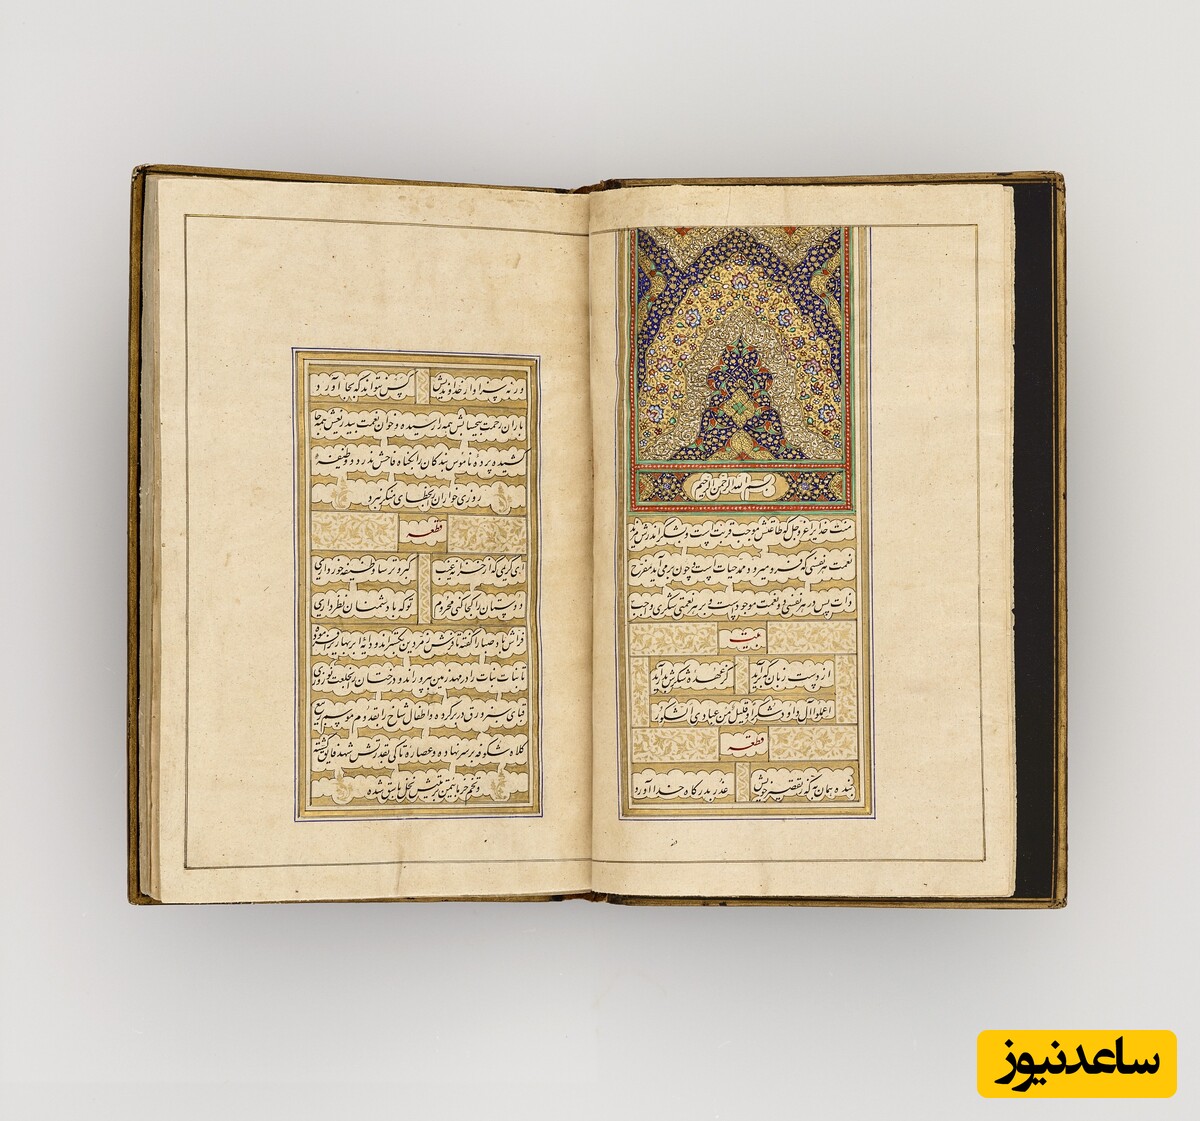 بسم الله الرحمن الرحیم
منت خدایرا عزوجل که طاعتش موجب قربتست و بشکر اندرش مزید
نعمت هر نفسی که فرو میرود ممد حیات است و چون برمی آید مفرح
ذات پس در هر نفسی دو نعمت موجودست و بر هر نعمتی شکری واجب
بیت
از دست و زبان که برآید کز عهده شکرش بدر آید
اعملوا آل داود شکرا و قلیل من عبادی الشکور
قطعه
بنده همان به که ز تقصیر خویش عذر بدرگاه خدا آورد
ورنه سزاوار خداوندیش کس نتواند که بجا آورد
باران رحمت بیحسابش همه را رسیده و خوان نعمت بیدریغش همه جا
کشیده پرده ناموس بندگان را بگناه فاحش ندرد و وظیفه
روزی خواران بخطای منکر نبرد
قطعه
ای کریمی که از خزانه غیب گبر و ترسا وظیفه خور داری
دوستان را کجا کنی محروم تو که با دشمنان نظر داری
فراش باد صبا را گفته تا فرش زمردین بگستراند و دایه ابر بهاری را فرموده
تا بنات نبات را در مهد زمین بپروراند و درختان را بخلعت نوروزی
قبای سبز ورق در بر کرده و اطفال شاخ را بقدوم موسم ربیع
کلاه شکوفه بر سر نهاده و عصاره تاکی بقدرتش شهد فایق گشته
و تخم خرما بیمن تربیتش نخل باسق شده
ساعدنیوز